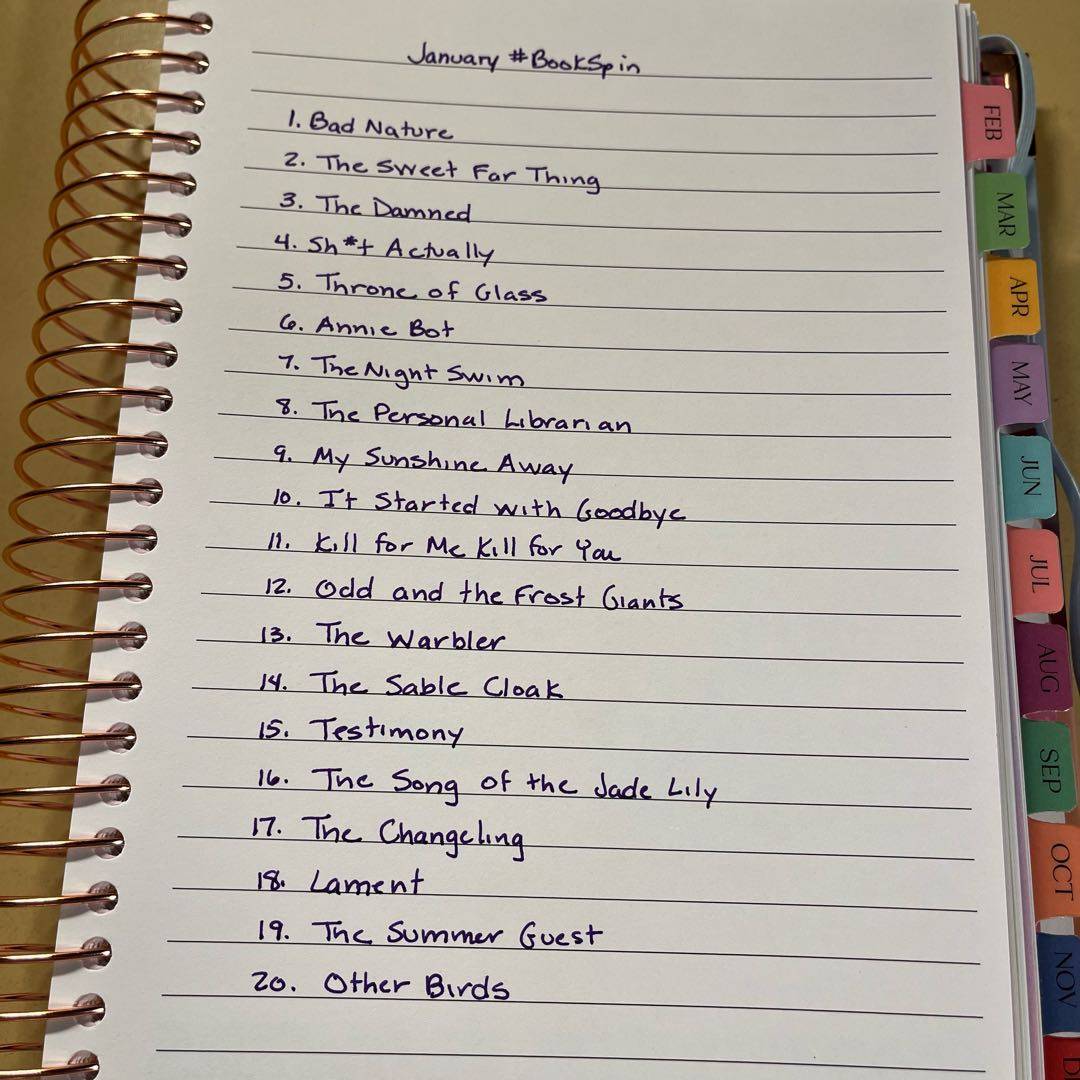 January #BookSpin
1. Bad Nature
2. The Sweet Far Thing
3. The Damned
4. Sh*t Actually
5. Throne of Glass
6. Annie Bot
7. The Night Swim
8. The Personal Librarian
9. My Sunshine Away
10. It Started with Goodbye
11. Kill for Me Kill for You
12. Odd and the Frost Giants
13. The Warbler
14. The Sable Cloak
15. Testimony
16. The Song of the Jade Lily
17. The Changeling
18. Lament
19. The Summer Guest
20. Other Birds
FEB
MAR
APR
MAY
JUN
JUL
AUG
SEP
OCT
NOV
D